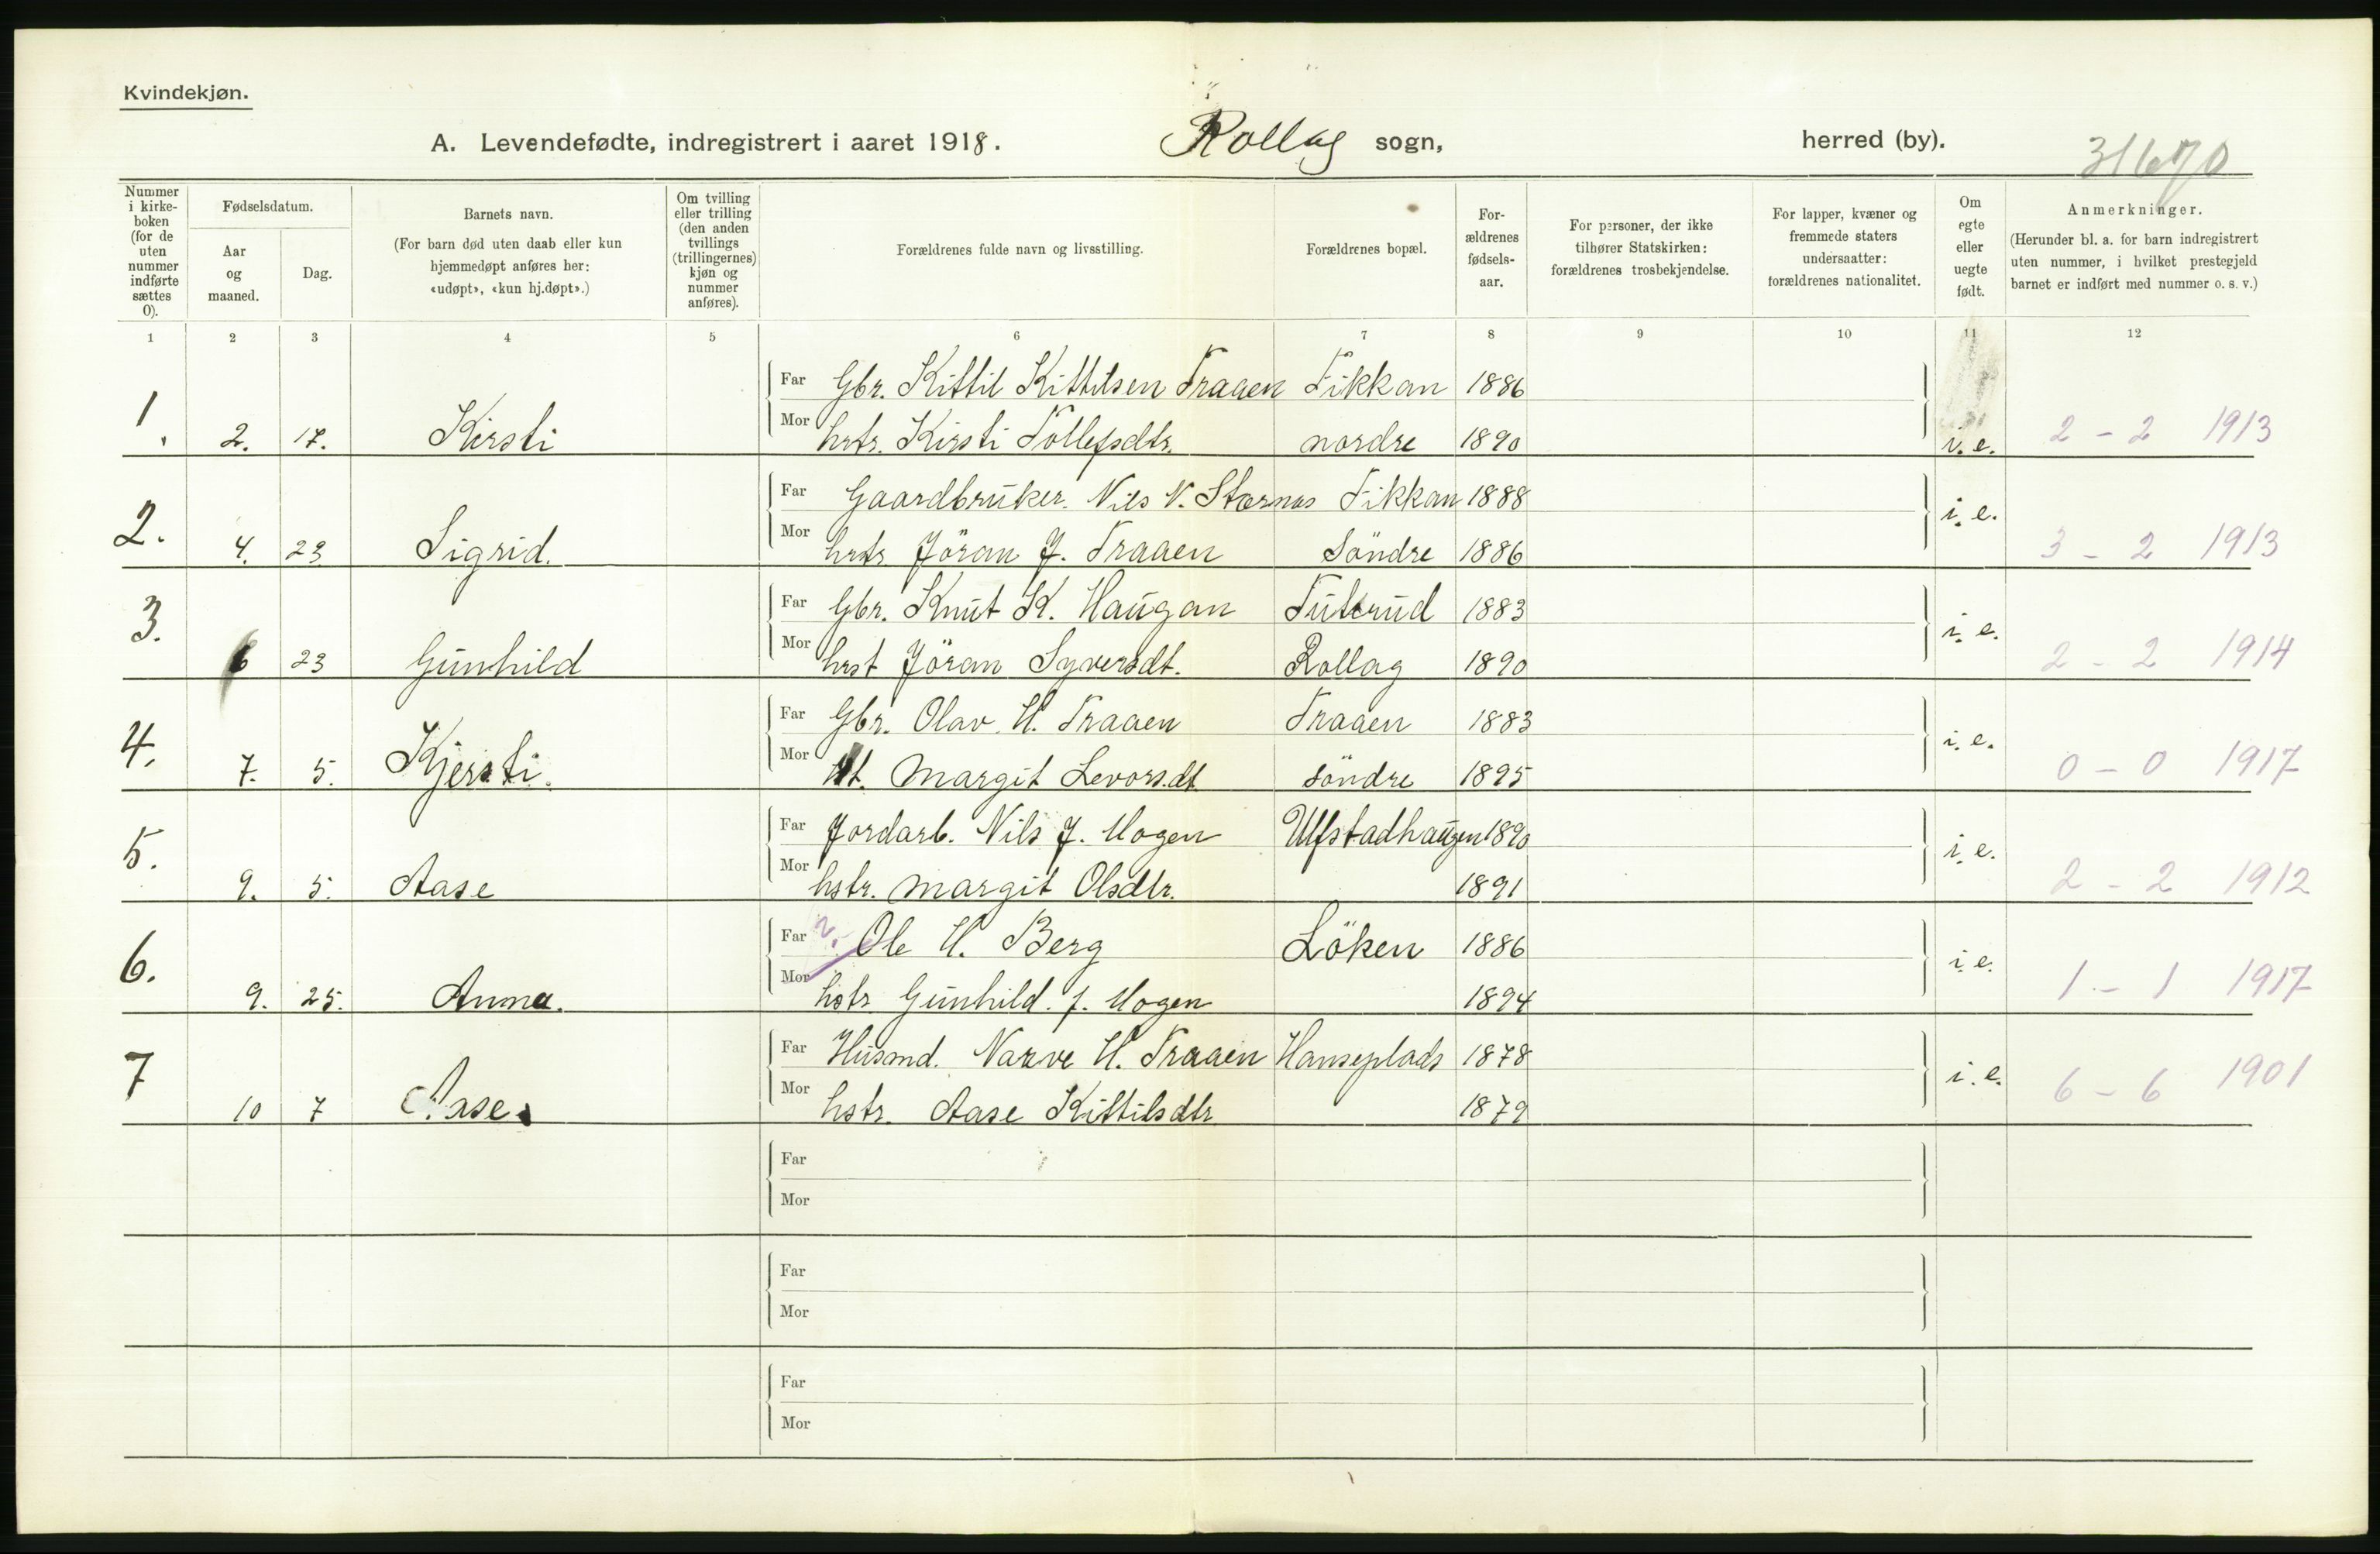 Kvindekjøn.
A. Levendefødte, indregistrert i aaret 1918. Rollag sogn, herred (by). 31670
Nummer i kirke-boken (for de uten nummer indførte sættes 0).
Fødselsdatum.
Aar og maaned.
Dag.
Barnets navn.
(For barn død uten daab eller kun hjemmedøpt anføres her: «udøpt», «kun hj.døpt».)
Om tvilling eller trilling (den anden tvillings (trillingernes) kjøn og nummer anføres).
Forældrenes fulde navn og livsstilling.
Forældrenes bopæl.
For-ældrenes fødsels-aar.
For personer, der ikke tilhører Statskirken: forældrenes trosbekjendelse.
For lapper, kvæner og fremmede staters undersaatter: forældrenes nationalitet.
Om egte eller uegte født.
Anmerkninger.
(Herunder bl. a. for barn indregistrert uten nummer, i hvilket prestegjeld barnet er indført med nummer o. s. v.)
1 2 3 4 5 6 7 8 9 10 11 12
Far Gbr. Kittil Kittilsen Traaen Fikkan 1886
1. 2. 17. Kirsti Mor hstr. Kirsti Tollefsdtr. nordre 1890 i. e. 2 - 2 1913
Far Gaardbruker. Nils N. Stærnes Fikkan 1888
2. 4. 23 Sigrid. Mor hstr Jöran J. Traaen Söndre 1886 i. e. 3 - 2 1913
Far Gbr. Knut K. Haugan Tutrud 1883
3. 6 23 Gunhild Mor hst Jöran Syversdt. Rollag 1890 i. e. 2 - 2 1914
Far Gbr. Olav H. Traaen Traaen 1883
4. 7. 5. Kjersti. Mor Margit Levorsdt söndre 1895 i. e. 0 - 0 1917
Far Jordarb. Nils J. Mogen Ulfstadhaugen 1890
5. 9. 5. Aase Mor hstr. Margit Olsdtr. 1891 i. e. 2 - 2 1912
Far Ole H. Berg Löken 1886
6. 9. 25. Anna. Mor hstr Gunhild J. Mogen 1894 i. e. 1 - 1 1917
Far Husmd. Narve H. Traaen Hanseplads 1878
7 10 7 Aase. Mor hstr. Aase Kittilsdtr 1879 i. e. 6 - 6 1901
Far
Mor
Far
Mor
Far
Mor